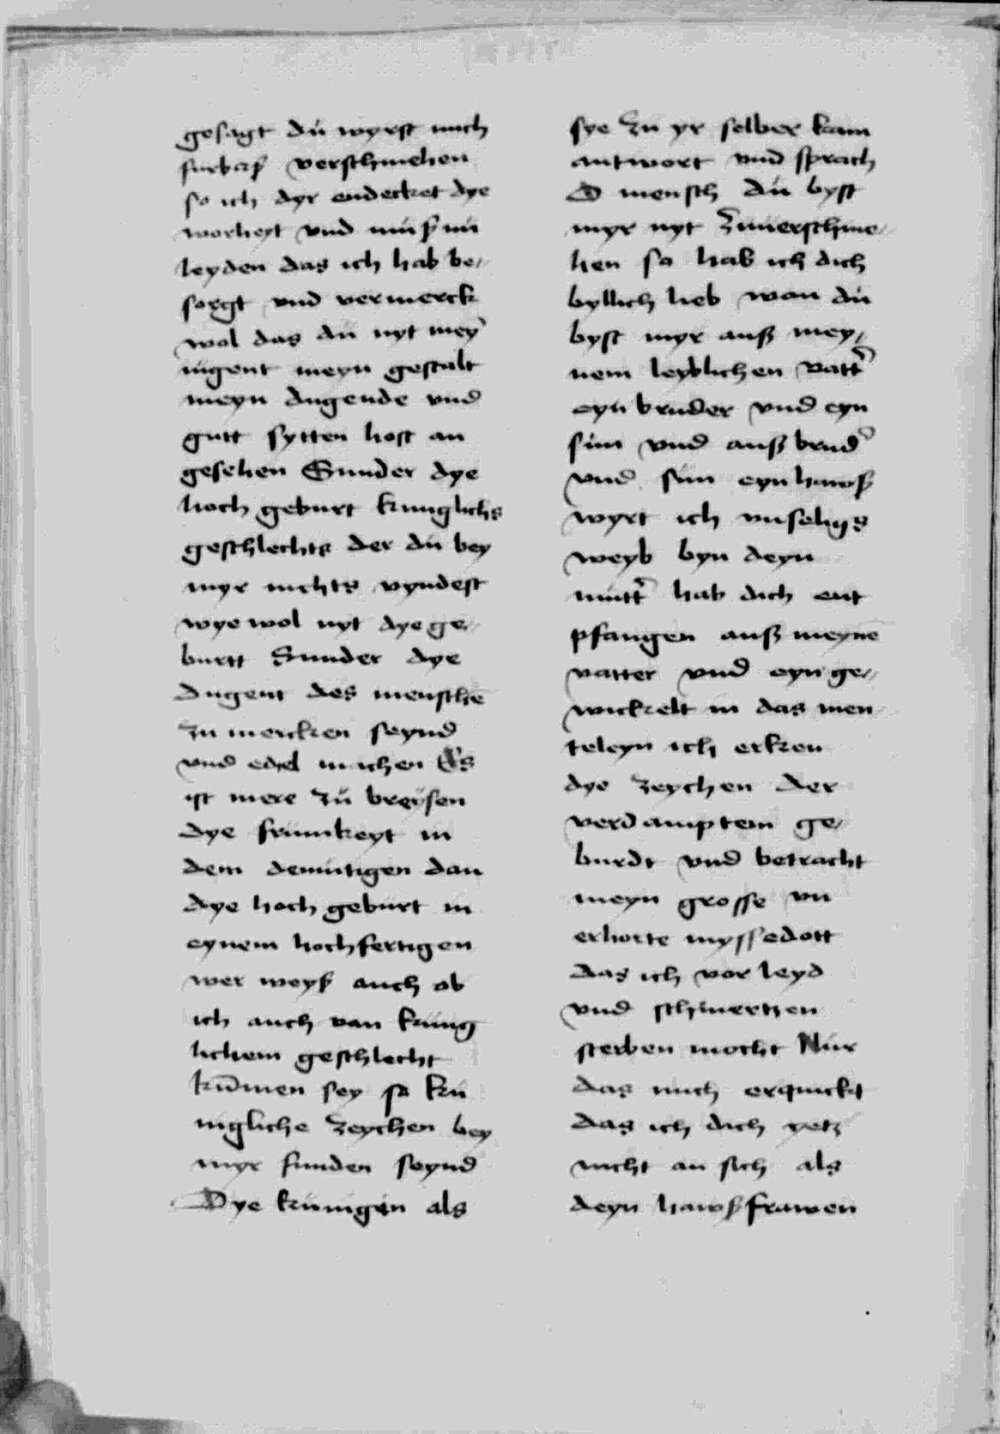 gesagt dú wyrst mich
furbaß verschmehen
so ich dyr endecket dye
worheyt vnd múß nú
leyden das ich hab be⸗
sorgt vnd vermerck
wol das dú nyt mey̅
iúgent meyn gestalt
meyn dugende vnd
gutt sytten host an
gesehen Sunder dye
hoch geburt kunglichs
geschlechts der dú bey
myr nichts vyndest
wye wol nyt dye ge⸗
burtt Sunder dye
dugent des mensche̅
zu mercken seynd
vnd edel machen Es
ist mere zú breysen
dye frumkeyt in
dem demútigen dan
dye hoch geburt in
eynem hochfertigen
wer weyß auch ob
ich auch van kúng
lichem geschlecht
ku̅men sey so kú
nigliche zeychen bey
myr funden seynd
Dye kúnigin als
sye zu yr selber kam
antwort vnd sprach
O mensch dú byst
myr nyt zúuerschme⸗
hen so hab ich dich
byllich lieb wan dú
byst myr auß mey⸗
nem leyblichen vatt̾
eyn bruder vnd eyn
sún vnd auß brud̾
vnd sún eyn hawß
wyrt ich vnseligs
weyb byn deyn
mútt̾ hab dich ent
pfangen auß meyne
vatter vnd eyn ge⸗
wickelt in das men
teleyn ich erken
dye zeychen der
verdamptem ge⸗
burdt vnd betracht
meyn grosse vn
erhorte myssedott
das ich vor leyd
vnd schmertzen
sterben mocht Nur
das mich erquickt
das ich dich yetz
nicht an sich als
deyn hawßfrawen